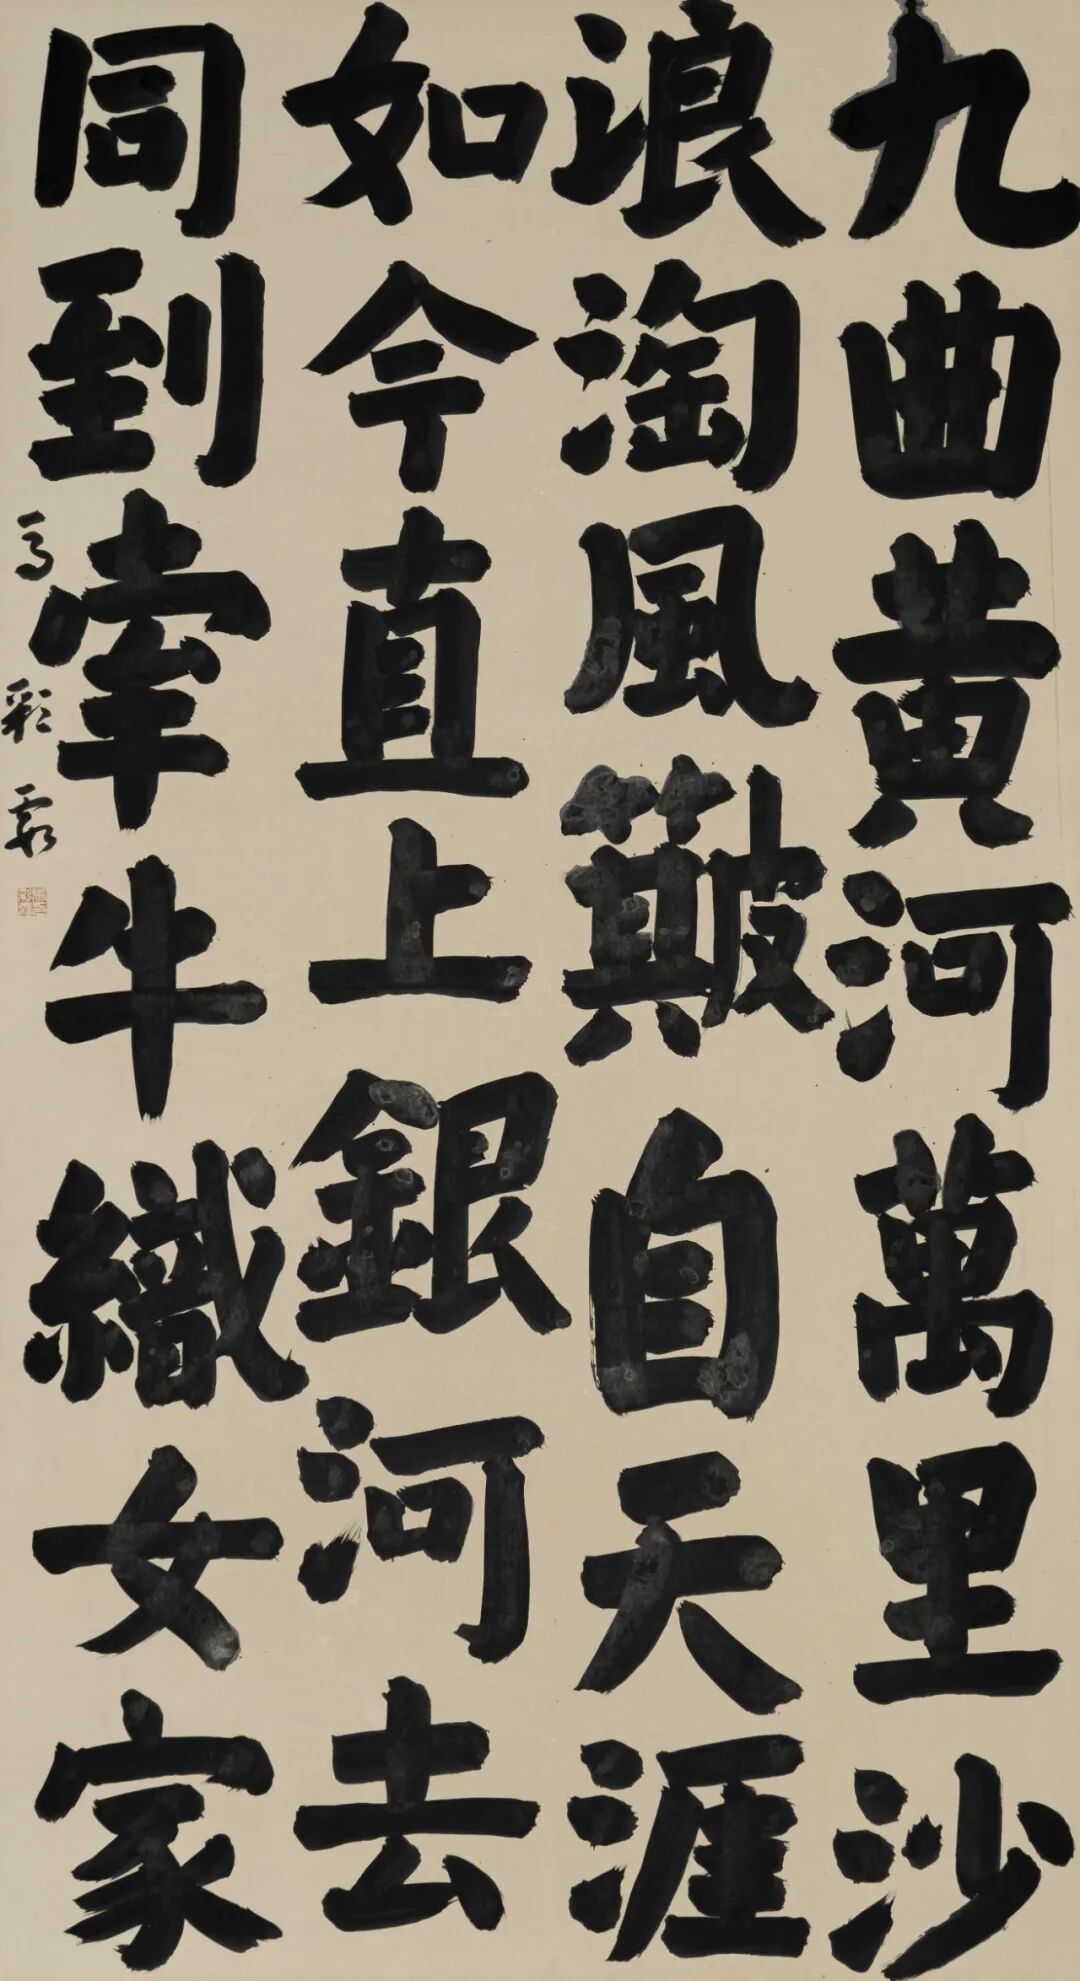 九曲黄河萬里沙
浪淘風簸自天涯
如今直上銀河去
同到牽牛織女家
彩霞